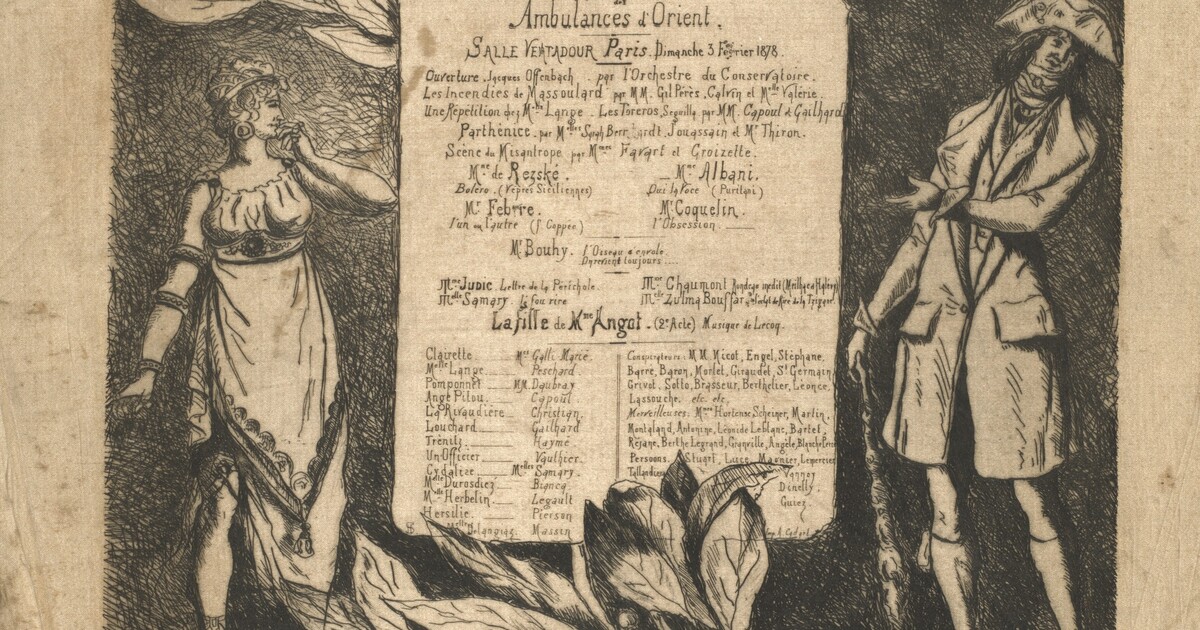 Ambulances d'Orient.
SALLE VENTADOUR Paris. Dimanche 3 Février 1878.
Ouverture. Jacques Offenbach. par l'Orchestre du Conservatoire.
Les Incendies de Massoulard par MM. Gil Pérès, Calvin et Melle Valérie.
Une Répétition chez Melle Lange. Les Toreros, Seguilla par MM. Capoul et Gailhard
Parthénice. par Melles Sarah Bernhardt. Jouassain et Mr Thiron.
Scène du Misantrope par Mmes Favart et Croizette.
Mme de Rezské. Mme Albani.
Boléro. (Vêpres Siciliennes) Qui la Voce (Puritani)
Mr Febvre. Mr Coquelin.
l'un ou l'autre (f. Coppée) l'Obsession.
Mr Bouhy. l'Oiseau s'envole
On revient toujours....
Mme Judic Lettre de la Périchole. Mme Chaumont Rondeau inédit (Meilhac et Halévy)
Melle Samary. le fou rire Melle Zulma Bouffar
La fille de Mme Angot. (2e Acte) Musique de Lecoq.
Clairette Mme Galli Marié.
Melle Lange Peschard
Pomponnet MM. Daubray
Ange Pitou. Capoul
La Rivaudière Christian.
Louchard Gailhard
Trénitz Hayme
Un Officier Vauthier.
Cydalise Melles Samary.
Melle Durosdiez Bianca
Melle Herbelin Legault
Hersilie Pierson
Massin
Conspirateurs: MM. Nicot, Engel, Stéphane.
Barré, Baron, Morlet, Giraudet, St Germain,
Grivot. Sotto, Brasseur, Berthelier, Léonce.
Lassouche. etc. etc.
Merveilleuses: Mmes Hortense Scheiner, Martin,
Montaland, Antonine, Léonide Leblanc, Bartet,
Réjane, Berthe Legrand, Granville, Angèle, Blanche
Persoons. Stuart, Luce, Magnier, Lemercier
Vannoy
Donelly.
Guiez.